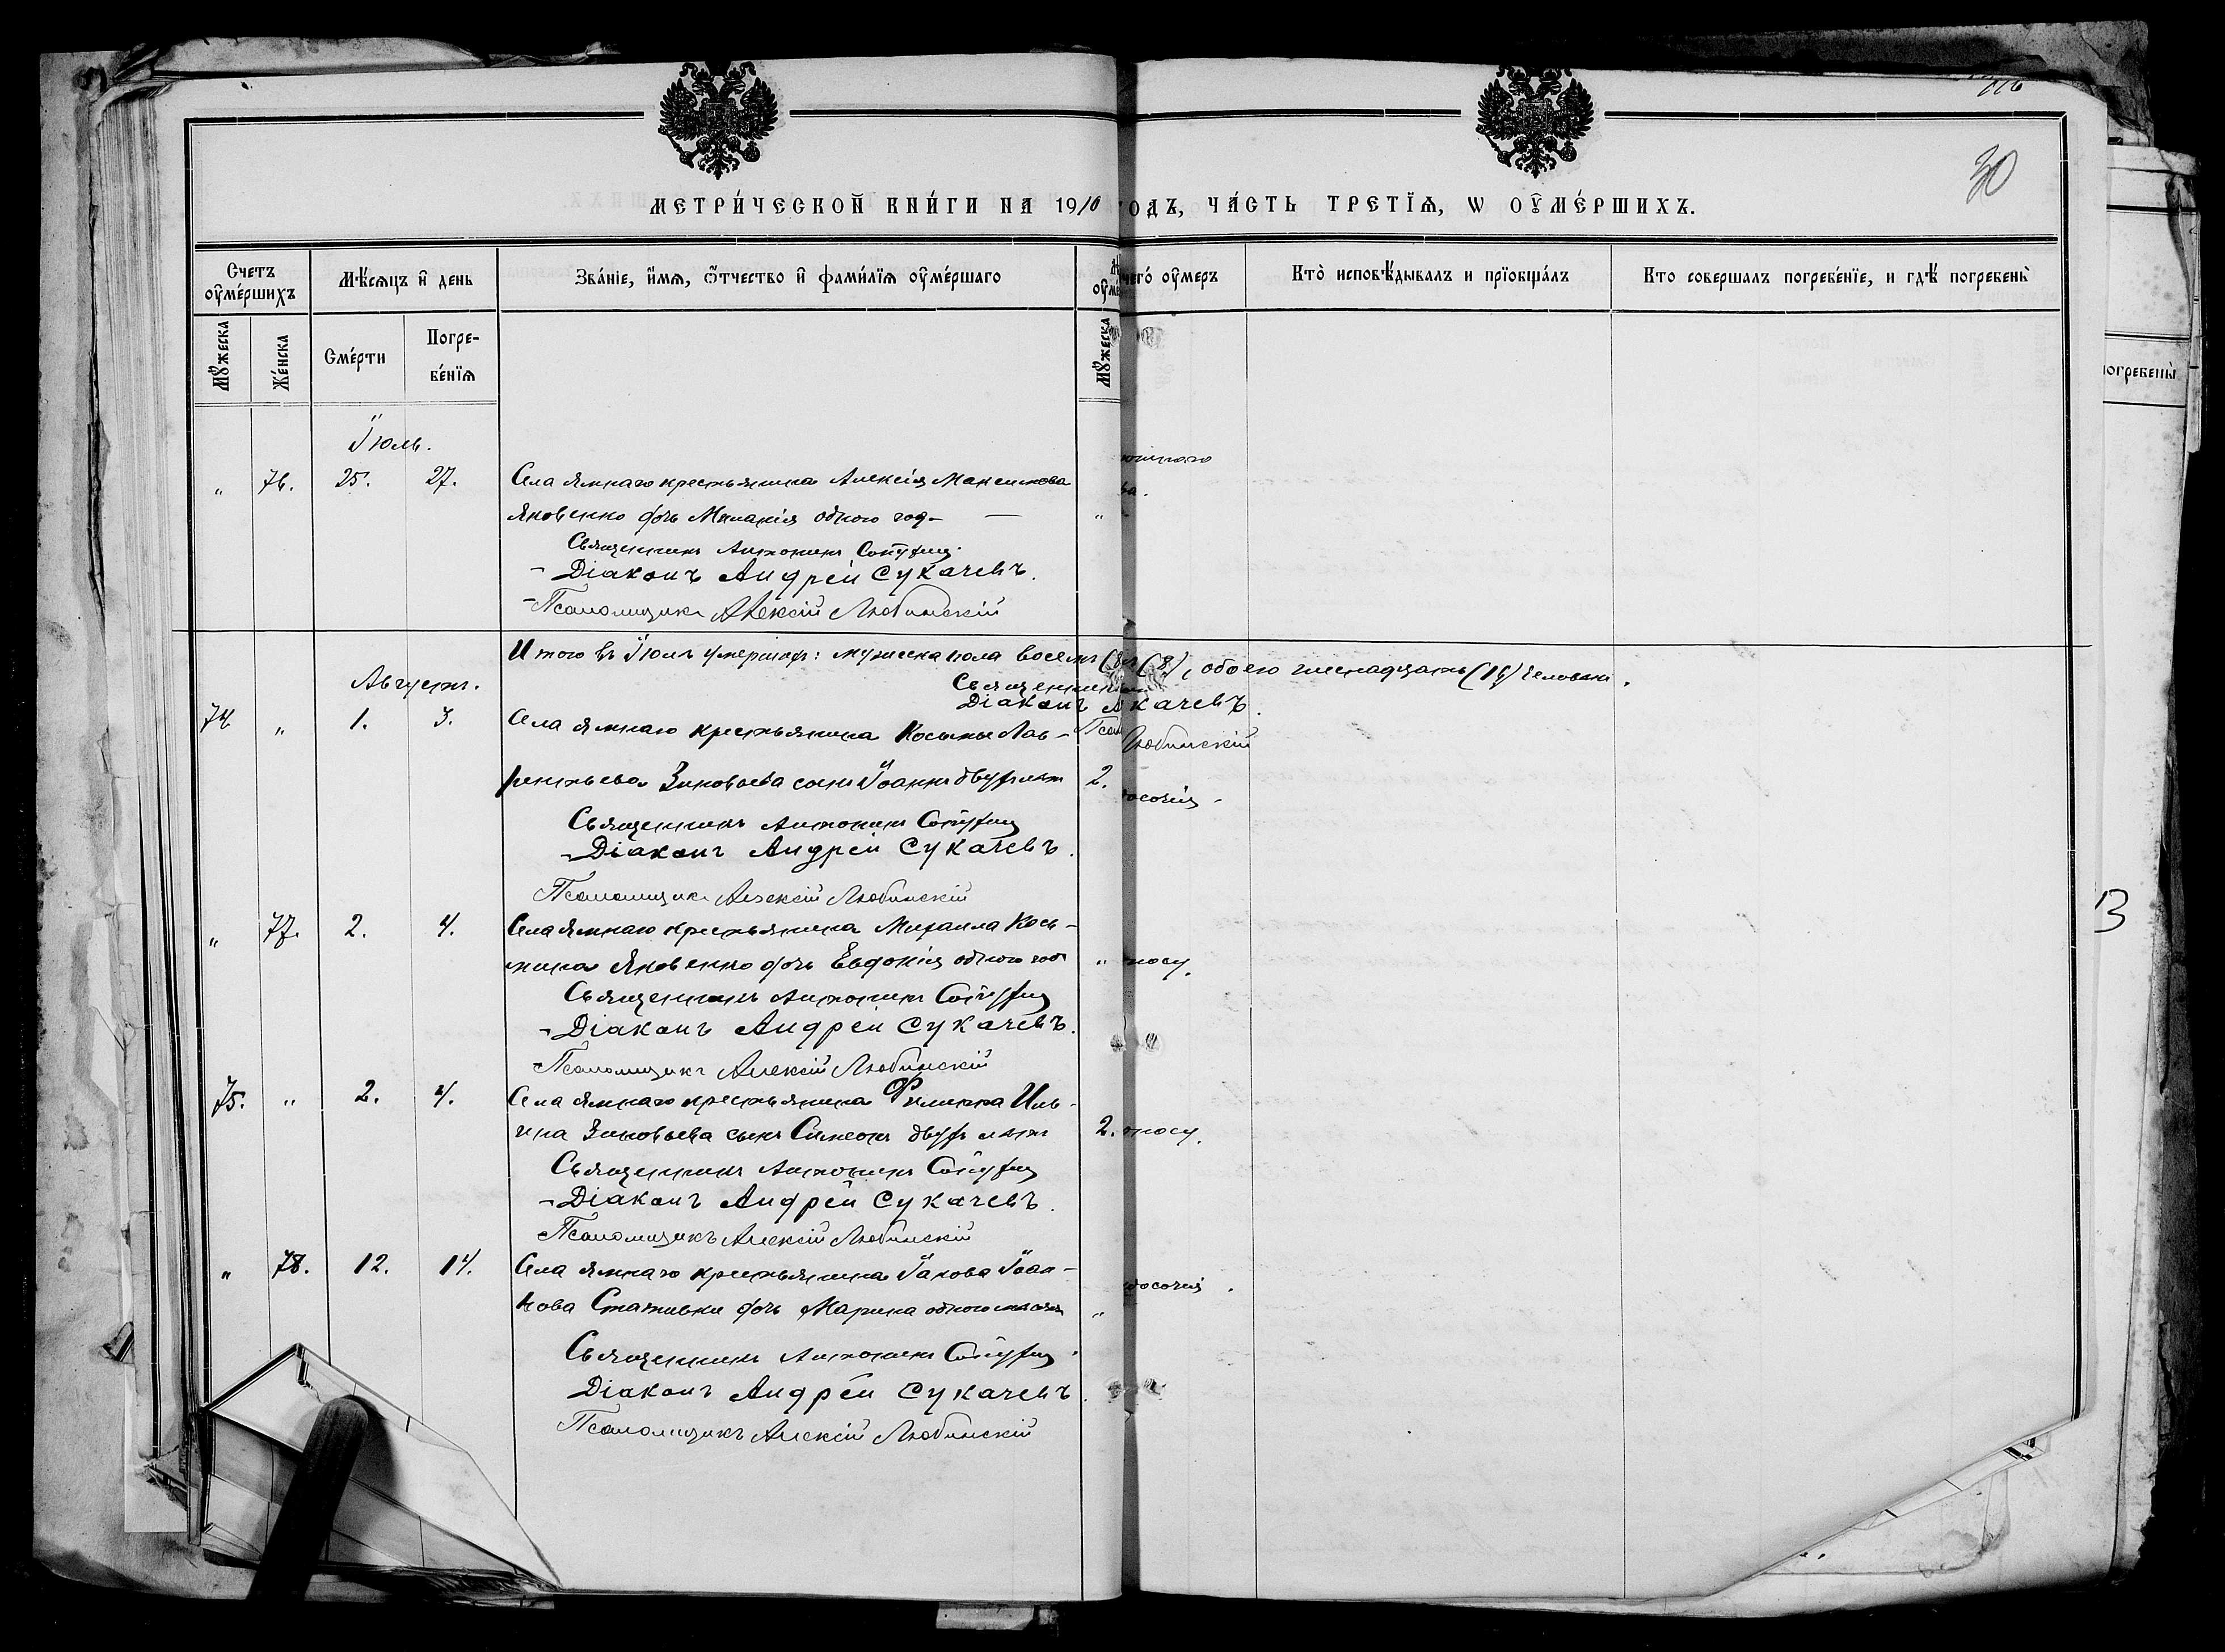 30
МЕТРИЧЕСКОЙ КНИГИ НА 1910 ГОДЪ, ЧАСТЬ ТРЕТІЯ, Ѡ ОУМЕРШИХЪ.
Счетъ оумершихъ
Мѣсяцъ и день
Званіе, имя, отчество и фамилія оумершаго
чего оумеръ
Кто исповѣдывалъ и пріобщалъ
Кто совершалъ погребеніе, и гдѣ погребены
Мужеска
Женска
Смерти
Погребенія
Мужеска
погребены
Іюль.
" 76. 25. 27. Села Ямнаго крестьянина Алексія Максимова
Яковенко дочь Меланія одного года — "
Священникъ Антонинъ
Діаконъ Андрей Сукачевъ.
Псаломщикъ Алексій Любинскій
Итого въ Іюлѣ умершихъ: мужеска пола восемь (8), обоего шестнадцать (16) человѣкъ.
Августъ.
Священникъ
Діаконъ Сукачевъ.
Любинскій
74. " 1. 3. Села Ямнаго крестьянина Косьмы Лав-
рентьева Зиновьева сынъ Іоаннъ двухъ лѣтъ 2.
Священникъ Антонинъ
Діаконъ Андрей Сукачевъ.
Псаломщикъ Алексій Любинскій
" 77. 2. 4. Села Ямнаго крестьянина Михаила Кось-
мина Яковенко дочь Евдокія одного года " поносу.
Священникъ Антонинъ
Діаконъ Андрей Сукачевъ.
Псаломщикъ Алексій Любинскій
75. " 2. 4. Села Ямнаго крестьянина Филиппа Иль-
ина Зиновьева сынъ Симеонъ двухъ лѣтъ 2. поносу.
Священникъ Антонинъ
Діаконъ Андрей Сукачевъ.
Псаломщикъ Алексій Любинскій
" 78. 12. 14. Села Ямнаго крестьянина Іакова Іоан-
нова Стативки дочь Марина одного мѣсяца "
Священникъ Антонинъ
Діаконъ Андрей Сукачевъ.
Псаломщикъ Алексій Любинскій